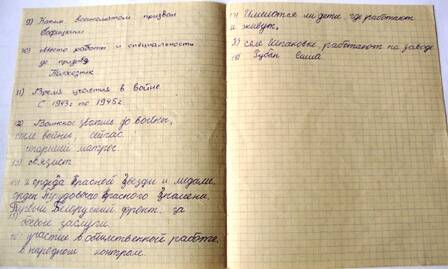 9) Каким военкоматом призван
10) Место работы и специальность
до призыва
Колхозник
11) Время участия в войне
С 1943 г по 1945 г
12) Воинское звание до войны,
после войны, сейчас
старший матрос.
13) связист
14) 2 ордена Красной Звезды и медали,
орден Трудового Красного Знамени.
Первый Белорусский фронт. за
боевые заслуги.
участие в общественной работе.
в народном контроле.
Имеются ли дети, где работают
и живут.
селе Шпаковке работают на заводе
Зубак Саша